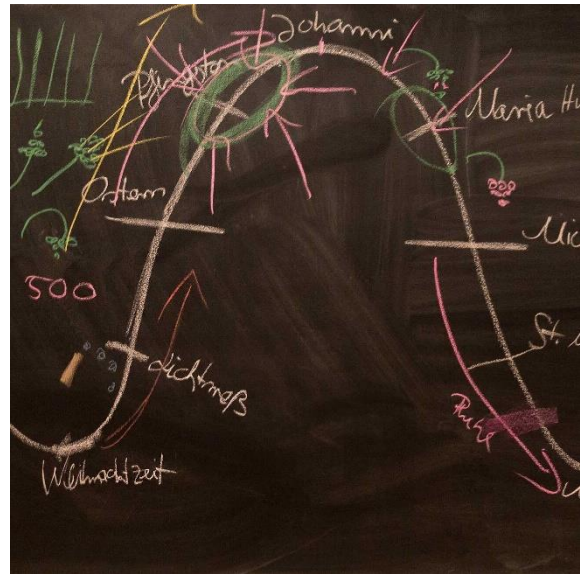 Johanni
Pfingsten
Maria H
Ostern
Mic
500
St.
Lichtmeß
Ruhe
Weihnachtzeit